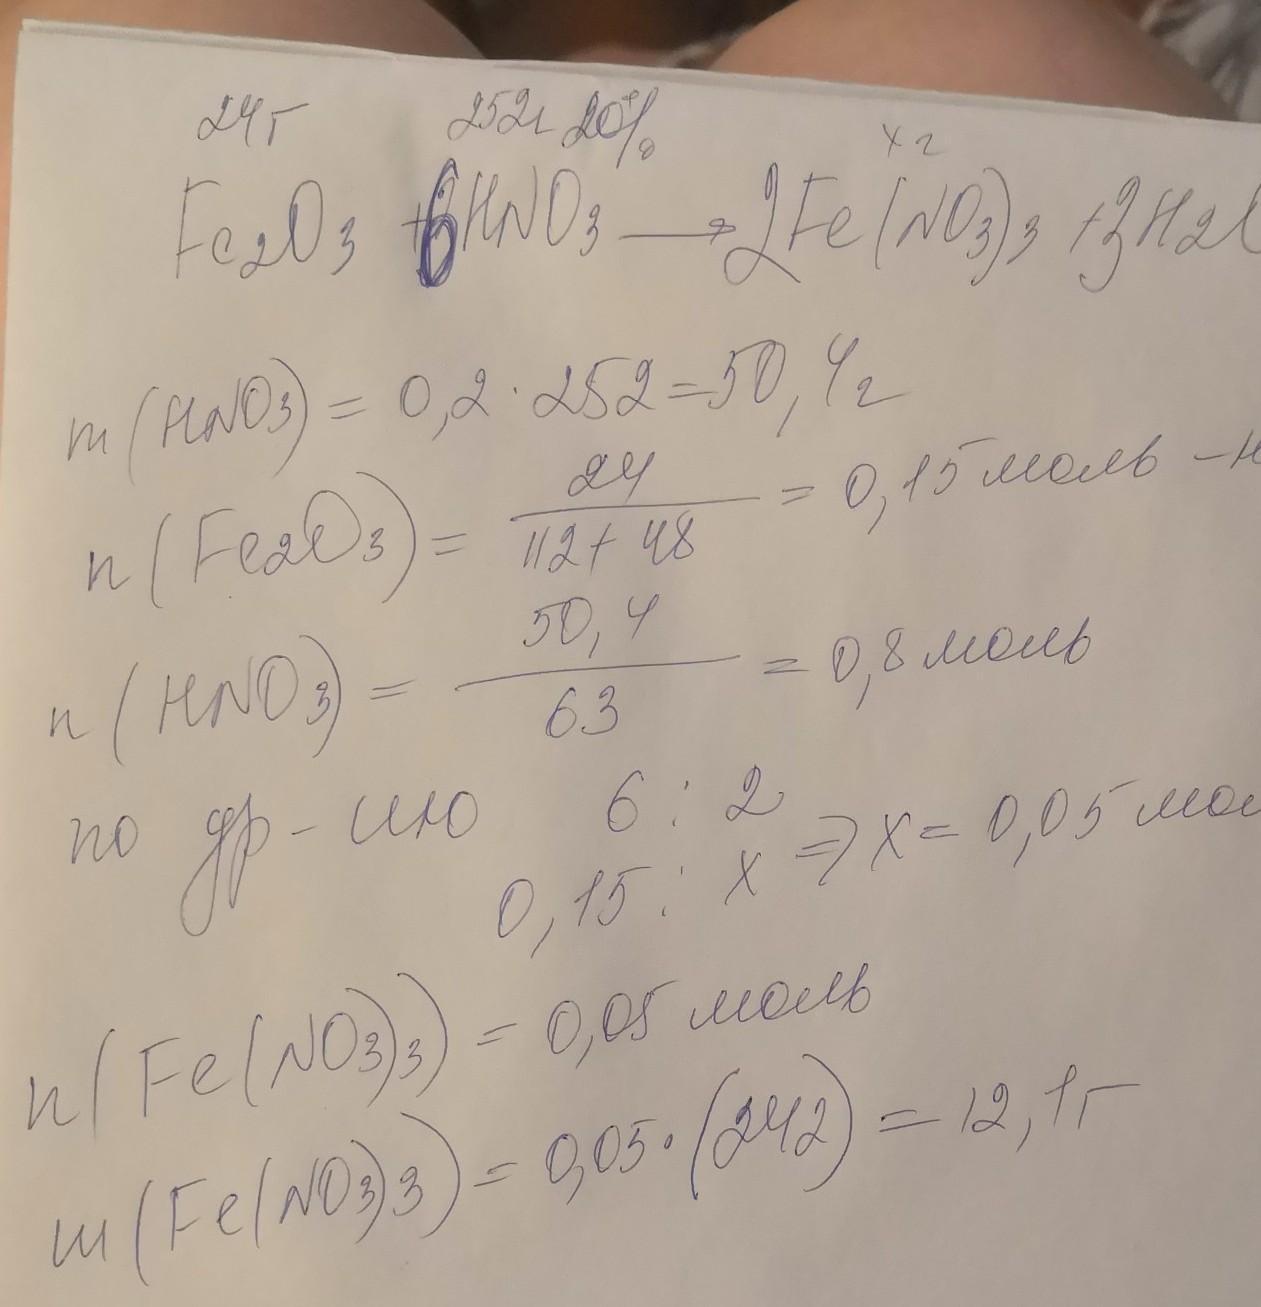 24г 252г 20% х г
Fe2O3 + 6HNO3 → 2Fe(NO3)3 + 3H2O
m(HNO3) = 0,2 · 252 = 50,4г
n(Fe2O3) = 24 / 112 + 48 = 0,15 моль – н
n(HNO3) = 50,4 / 63 = 0,8 моль
по ур-ию 6 : 2
0,15 : х ⇒ х = 0,05 мол
n(Fe(NO3)3) = 0,05 моль
m(Fe(NO3)3) = 0,05 · (242) = 12,1г